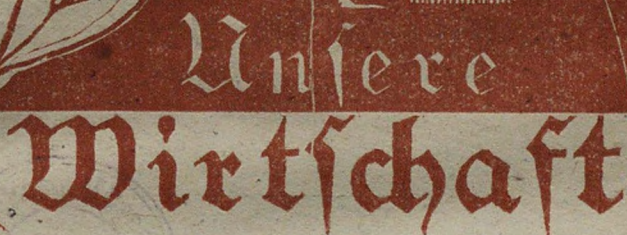 Unſere
Wirtſchaft